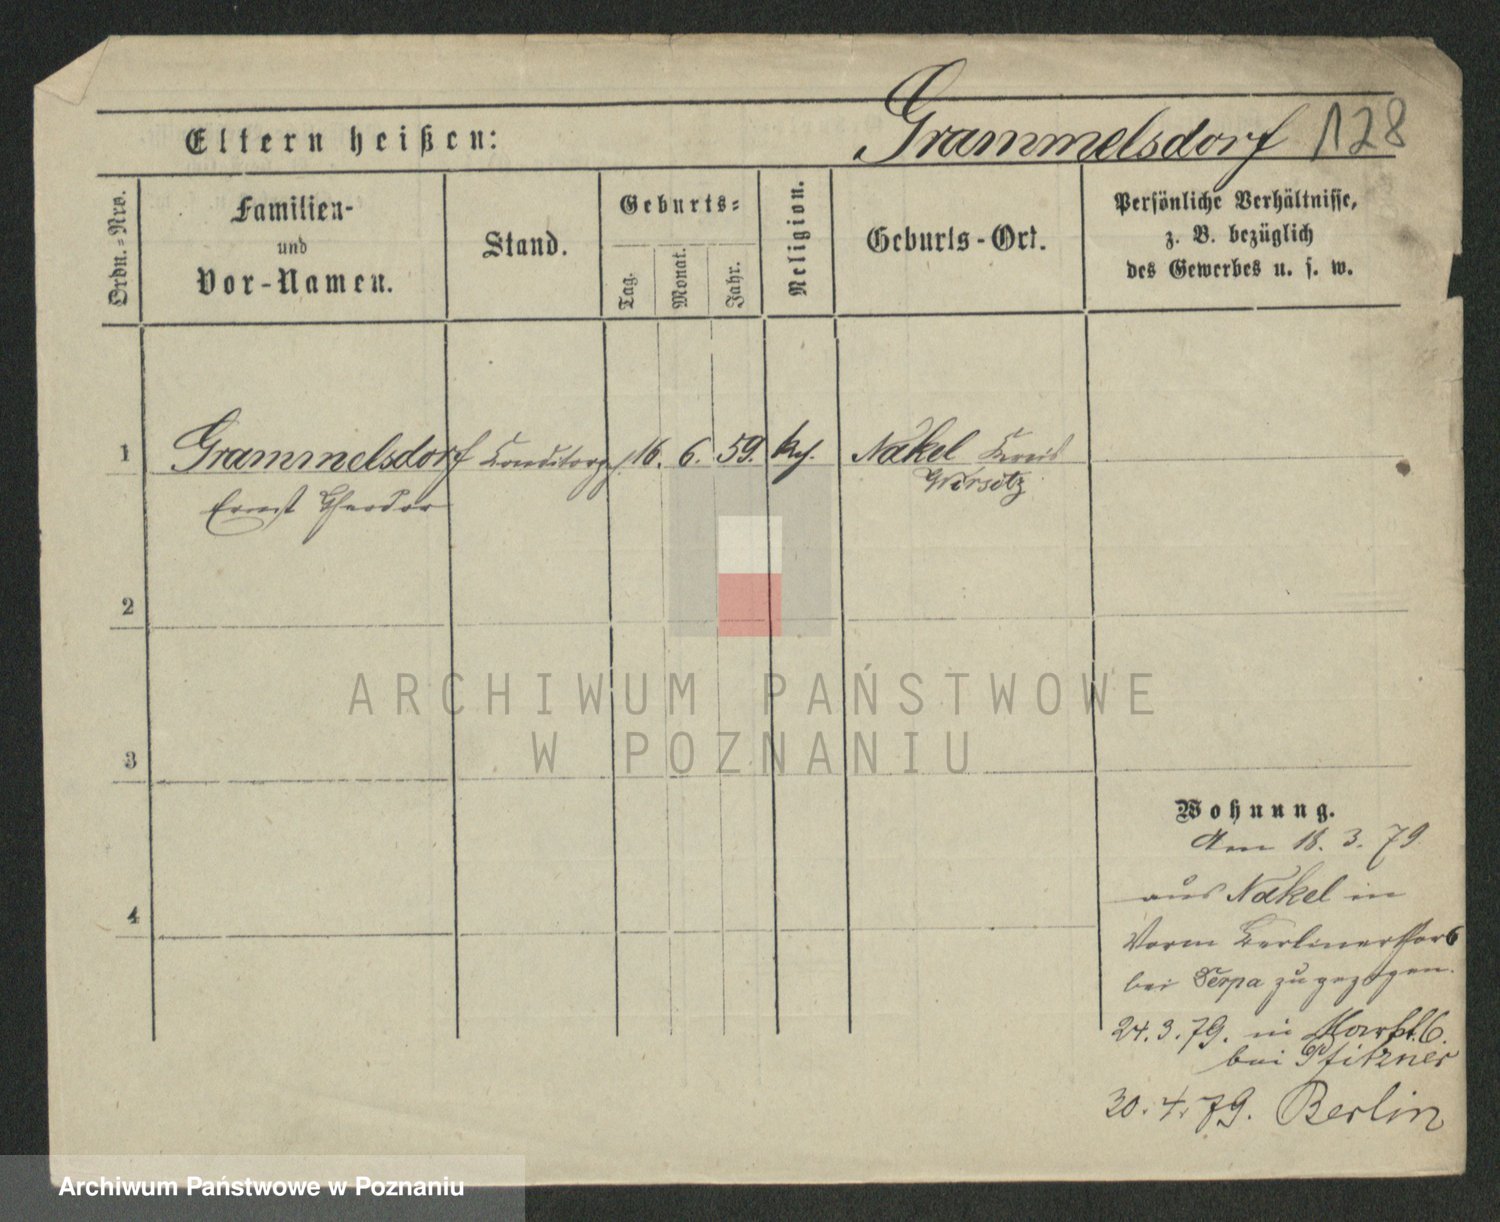 Grammelsdorf 128
Eltern heißen:
Ordn.-Nro.
Familien-
und
Vor-Namen.
Stand.
Geburts-
Tag.
Monat.
Jahr.
Religion.
Geburts-Ort.
Persönliche Verhältnisse,
z. B. bezüglich
des Gewerbes u. s. w.
1 Grammelsdorf Conditorgh. 16. 6. 59. Nakel Kreis
Ernst Theodor Wirsitz
2
3
4
Wohnung.
Am 18. 3. 79.
aus Nakel in
Vorm Berlinerthor 6
bei zugezogen.
24. 3. 79. in Markt 6.
bei Pfitzner
30. 4. 79. Berlin
ARCHIWUM PAŃSTWOWE
W POZNANIU
Archiwum Państwowe w Poznaniu